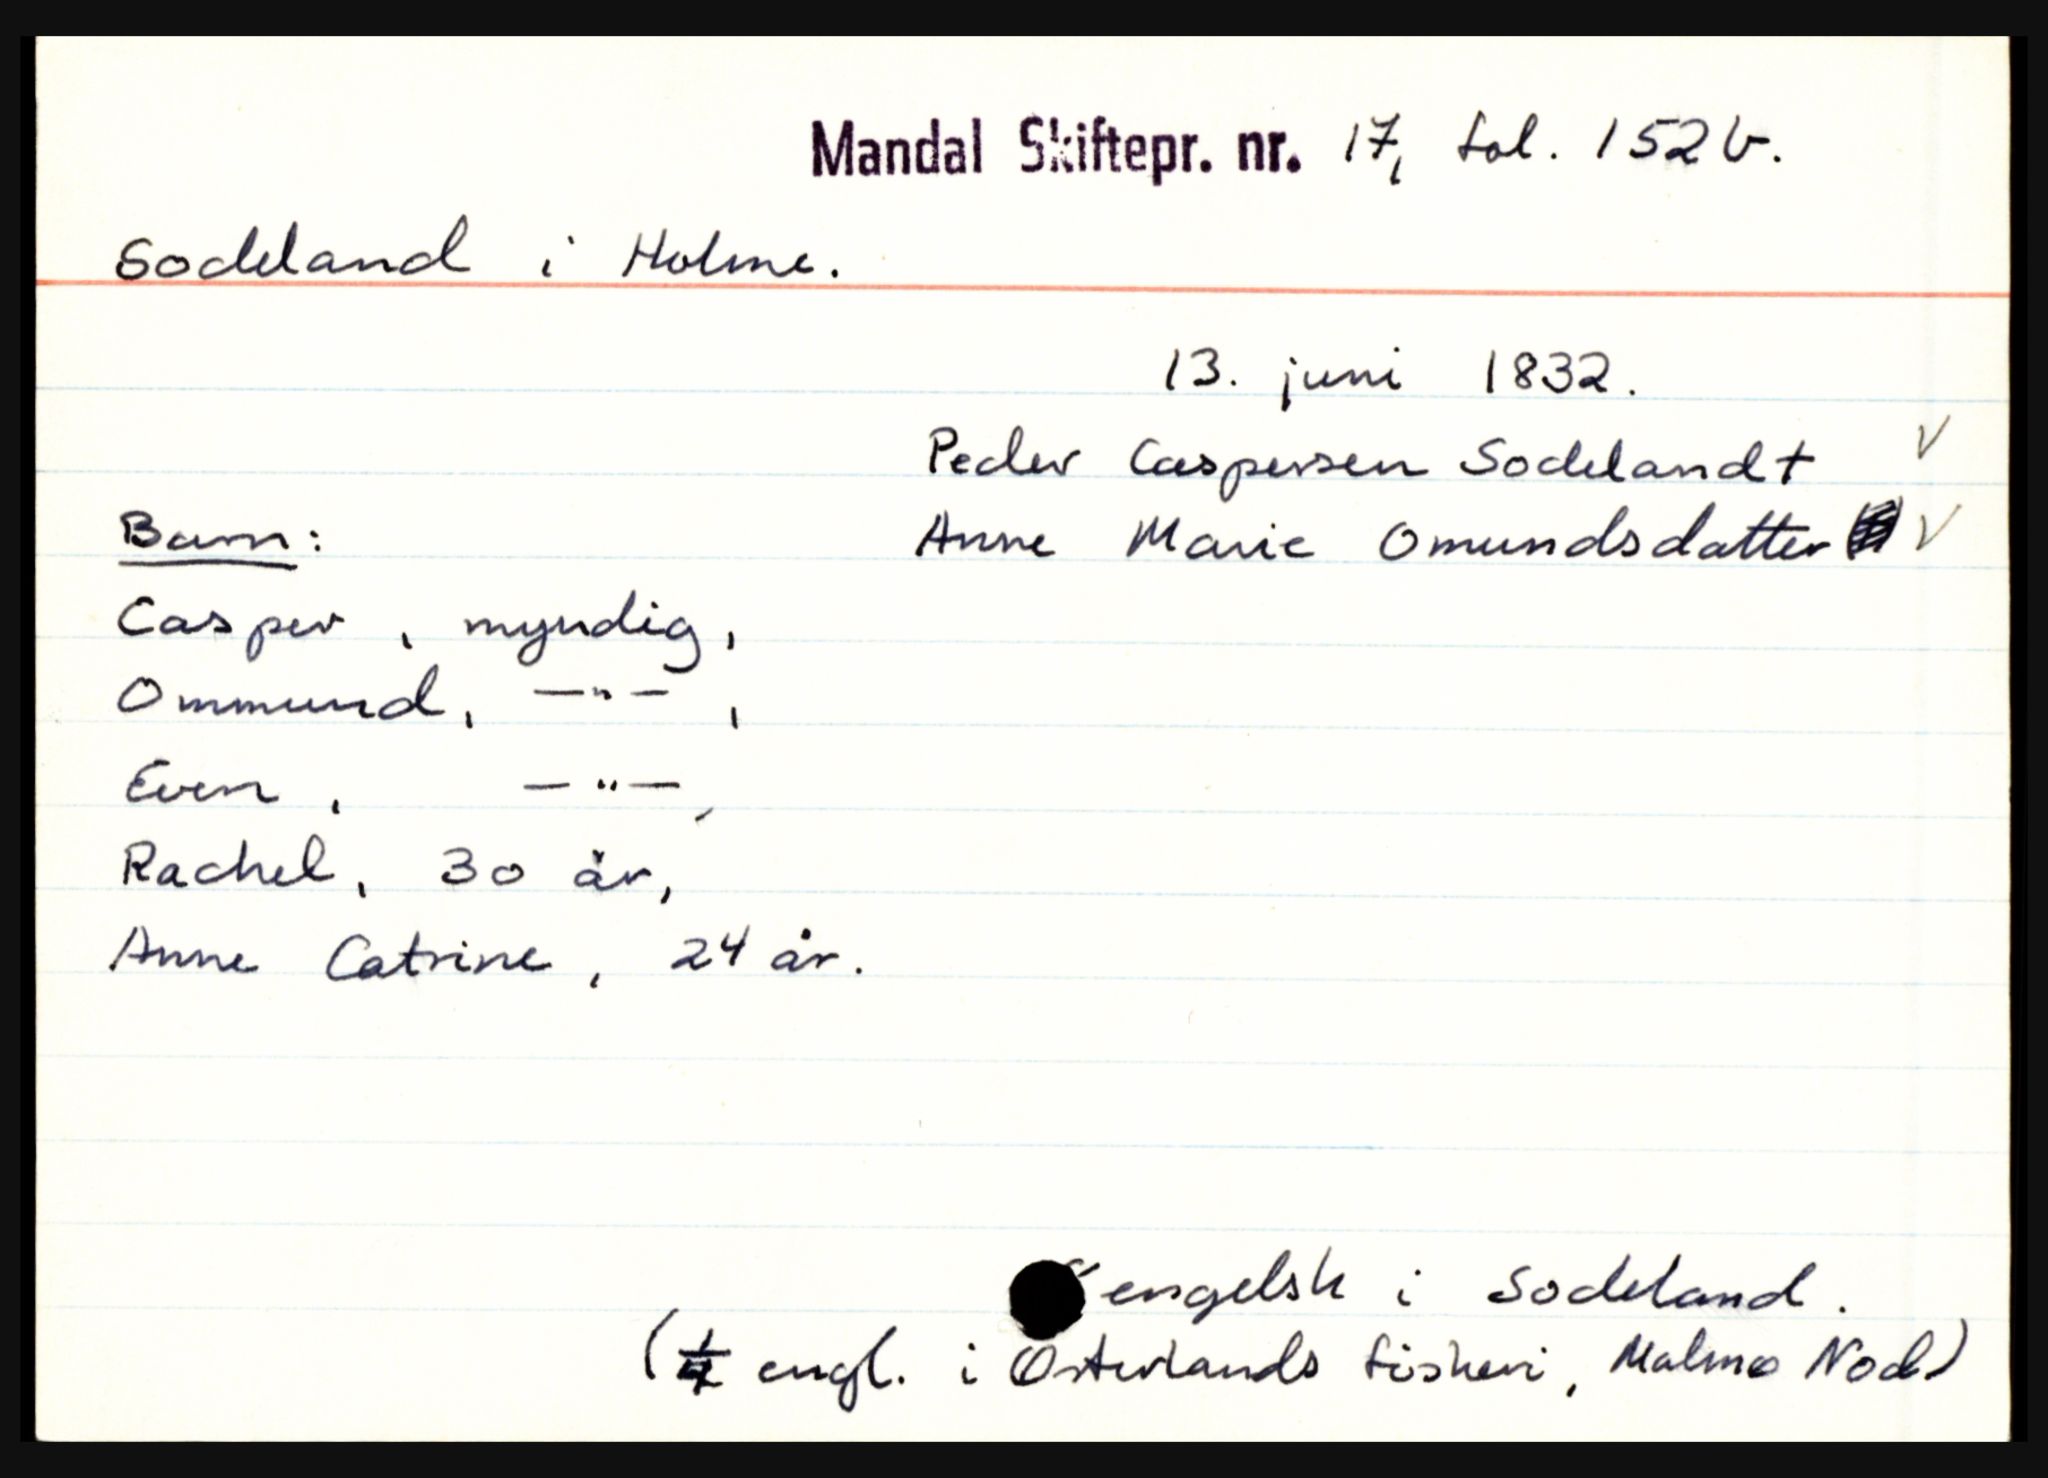 Mandal Skiftepr. nr. 17, fol. 152 b.
Sodeland i Holme.
13. juni 1832.
Peder Caspersen Sodeland † V
Anne Marie Omundsdatter V
Barn:
Casper, myndig,
Ommund, —"—,
Even, —"—,
Rachel, 30 år,
Anne Catrine, 24 år.
engelsk i Sodeland.
( engl. i Osterlands fiskeri, Malmo Nod.)